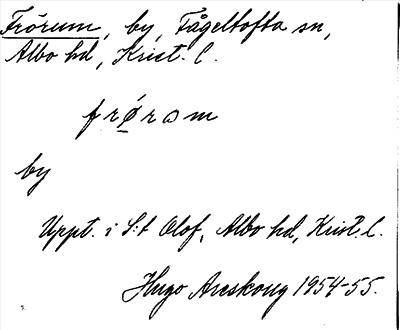 Frörum, by, Fågeltofta sn,
Albo hd, Krist. l.
frǿ̱rɔm
by
Uppt. i S:t Olof, Albo hd, Krist. l.
Hugo Areskoug 1954-55.